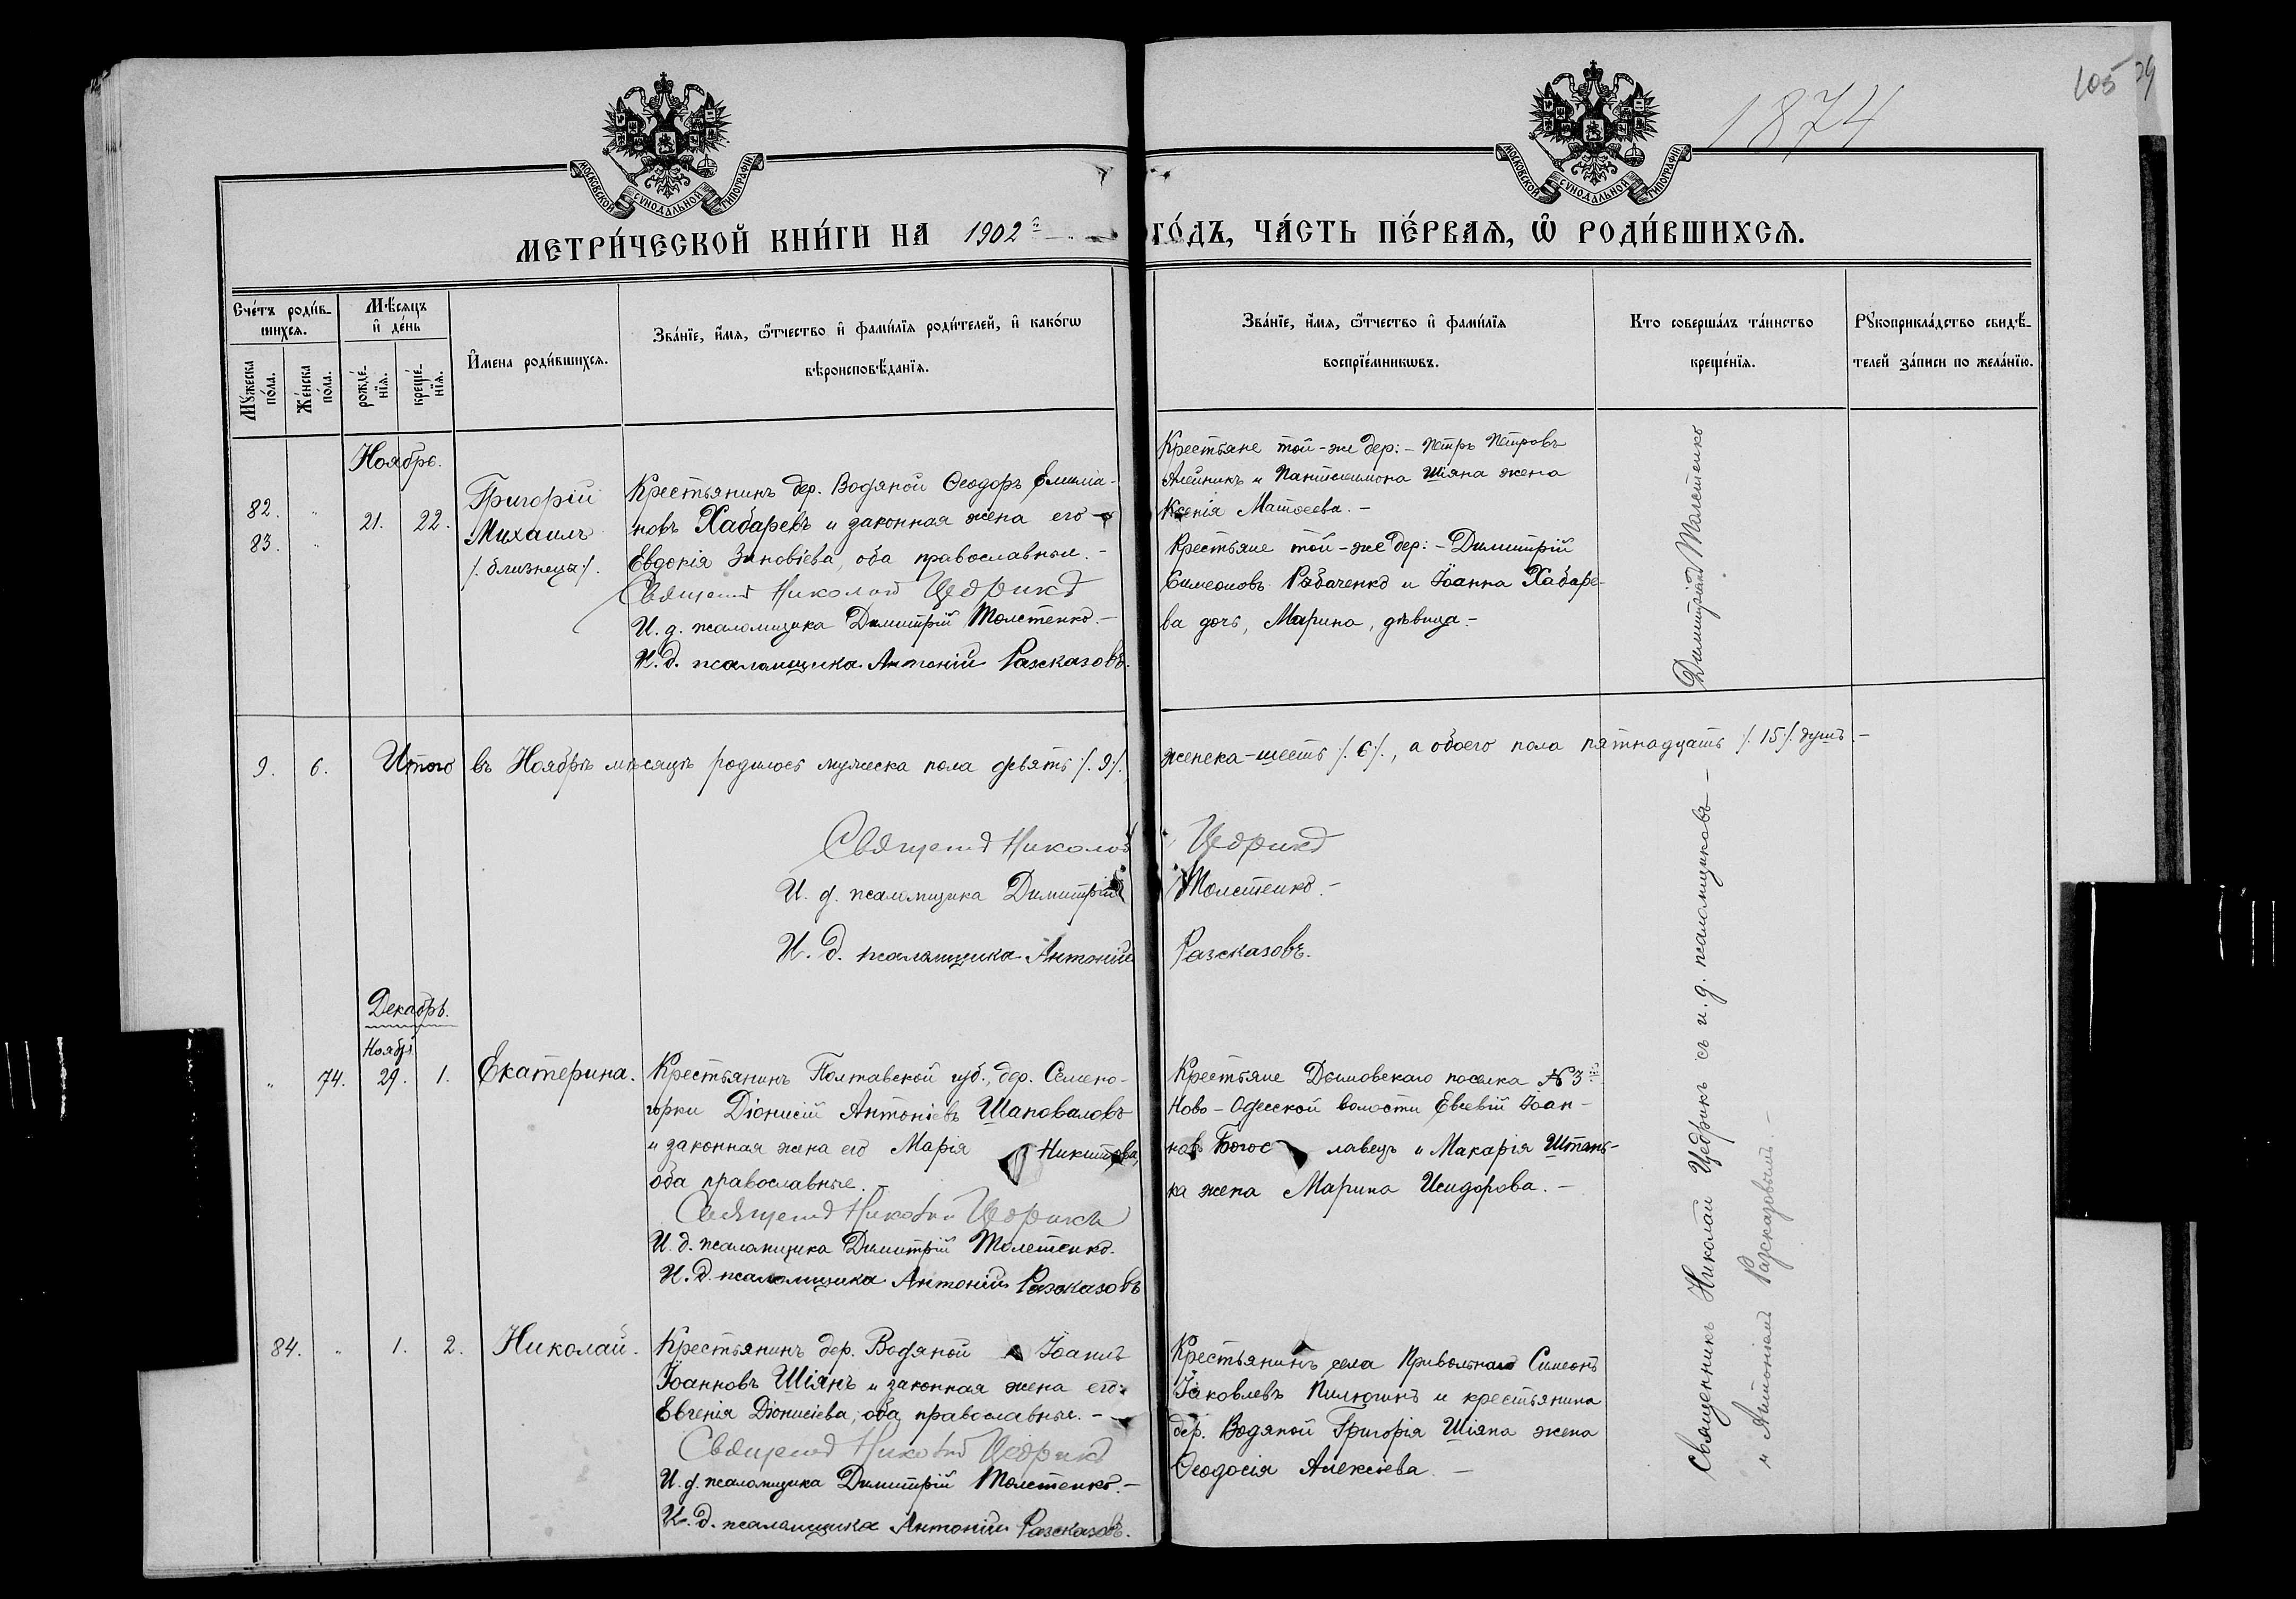 1874
105 29
МОСКОВСКОЙ СУНОДАЛЬНОЙ ТИПОГРАФІИ
МОСКОВСКОЙ СУНОДАЛЬНОЙ ТИПОГРАФІИ
МЕТРИ́ЧЕСКОЙ КНИ́ГИ НА 1902й го́дъ, ча́сть пе́рваѧ, ѡ҆ роди́вшихсѧ.
Сче́тъ роди́в-
шихсѧ.
Мѣ́сѧцъ
и҆ де́нь
Мꙋ́жеска по́ла.
Же́нска по́ла.
рожде́-
нїѧ.
креще́-
нїѧ.
И҆мена роди́вшихсѧ.
Зва́нїе, и҆́мѧ, ѻ҆́тчество и҆ фами́лїѧ роди́телей, и҆ како́гѡ
вѣроисповѣ́данїѧ.
Зва́нїе, и҆́мѧ, ѻ҆́тчество и҆ фами́лїѧ
воспрїе́мникѡвъ.
Кто соверша́лъ та́инство
креще́нїѧ.
Рꙋкоприкла́дство свидѣ́-
телей за́писи по жела́нїю.
Ноябрь.
82. " 21. 22. Григорій
83. " Михаилъ
/. близнецы /.
Крестьянинъ дер. Водяной Ѳеодоръ Емилія-
новъ Хабаревъ и законная жена его
Евдокія Зиновіева, оба православные. -
Священникъ Николай Цедрикъ
И. д. псаломщика Димитрій Толстенко. -
И. д. псаломщика Антоній Разсказовъ.
Крестьяне той-же дер: - Петръ Петровъ
Алейникъ и Пантелеимона Шіяна жена
Ксенія Матѳеева. -
Крестьяне той-же дер: - Димитрій
Симеоновъ Рабаченко и Іоанна Хабаре-
ва дочь, Марина, дѣвица. -
9. 6. Итого въ Ноябрѣ мѣсяцѣ родилось мужеска пола девять /. 9 /. женска - шесть /. 6 /., а обоего пола пятнадцать /. 15 /. душъ. -
Священникъ Николай Цедрикъ
И. д. псаломщика Димитрій Толстенко. -
И. д. псаломщика Антоній Разсказовъ.
Декабрь.
Ноябр.
" 74. 29. 1. Екатерина.
Крестьянинъ Полтавской губ., дер. Семено-
горки Діонисій Антоніевъ Шаповаловъ
и законная жена его Марія Никитова,
оба православные. -
Священникъ Николай Цедрикъ
И. д. псаломщика Димитрій Толстенко.
И. д. псаломщика Антоній Разсказовъ
Крестьяне поселка № 3й
Ново-Одесской волости Евсевій Іоан-
новъ Богославецъ и Макарія Штань-
ка жена Марина Исидорова. -
84. " 1. 2. Николай.
Крестьянинъ дер. Водяной Іоаннъ
Іоанновъ Шіянъ и законная жена его
Евгенія Діонисіева, оба православные. -
Священникъ Николай Цедрикъ
И. д. псаломщика Димитрій Толстенко. -
И. д. псаломщика Антоній Разсказовъ.
Крестьянинъ села Привольнаго Симеонъ
Іаковлевъ Пилюгинъ и крестьянина
дер. Водяной Григорія Шіяна жена
Ѳеодосія Алексіева. -
Священникъ Николай Цедрикъ съ и. д. псаломщиковъ - Димитріемъ Толстенко
и Антоніемъ Разсказовымъ. -